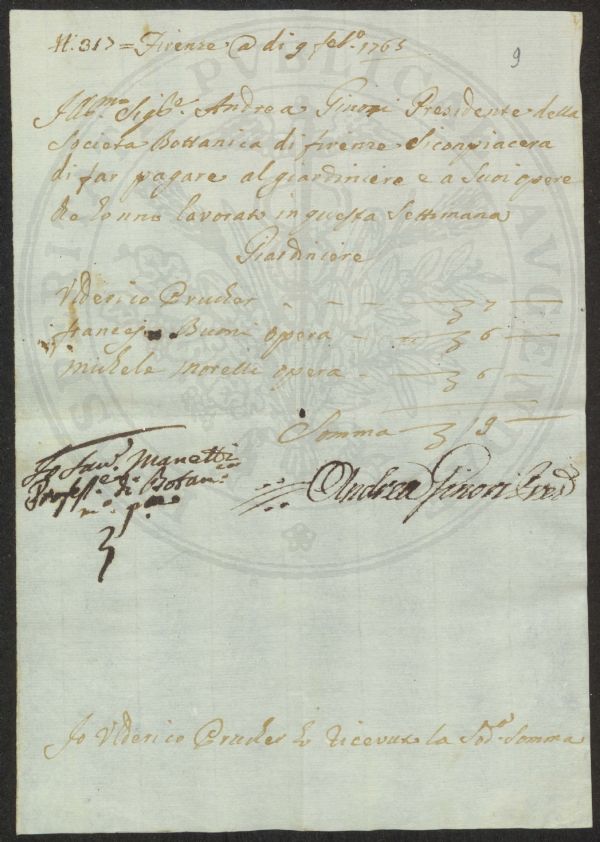 N: 317 = Firenze @ di 9 feb.º 1765
9
Ill.mo Sig.re Andrea Ginori Presidente della
Società Bottanica di firenze Si conpiacera
di far pagare al giardiniere e a Suoi opere
che ànno lavorato in questa Settimana
Giardiniere
Vlderico Prucher - - - 7 -
francesco Buoni opera - - 6 -
michele moretti opera - 6 -
Somma 9
Io Sav.º Manetti
Profess.e di Botan.ca
m.º p.a
Andrea Ginori Pred
Io Vlderico Prucher ò Ricevuto la Sod.ª Somma